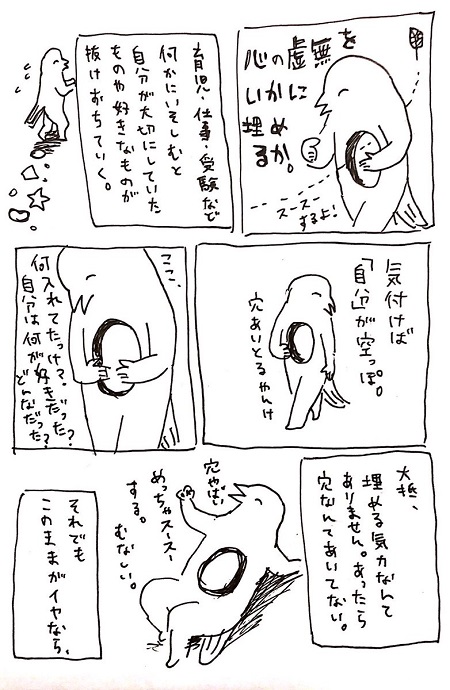 心の虚無を
いかに
埋め
るか。
スースー
するよ!
育児・仕事・受験など
何かにいそしむと
自分が大切にしていた
ものや好きなものが
抜けおちていく。
気付けば
「自分」が空っぽ。
穴あいとるやんけ
ここ、
何入れてたっけ?
自分は何が好きだった?
どんなだった?
大抵、
埋める気力なんて
ありません。あったら
穴なんてあいてない。
穴やばい
めっちゃスースー
する。
むなしい。
それでも
このままがイヤなら、